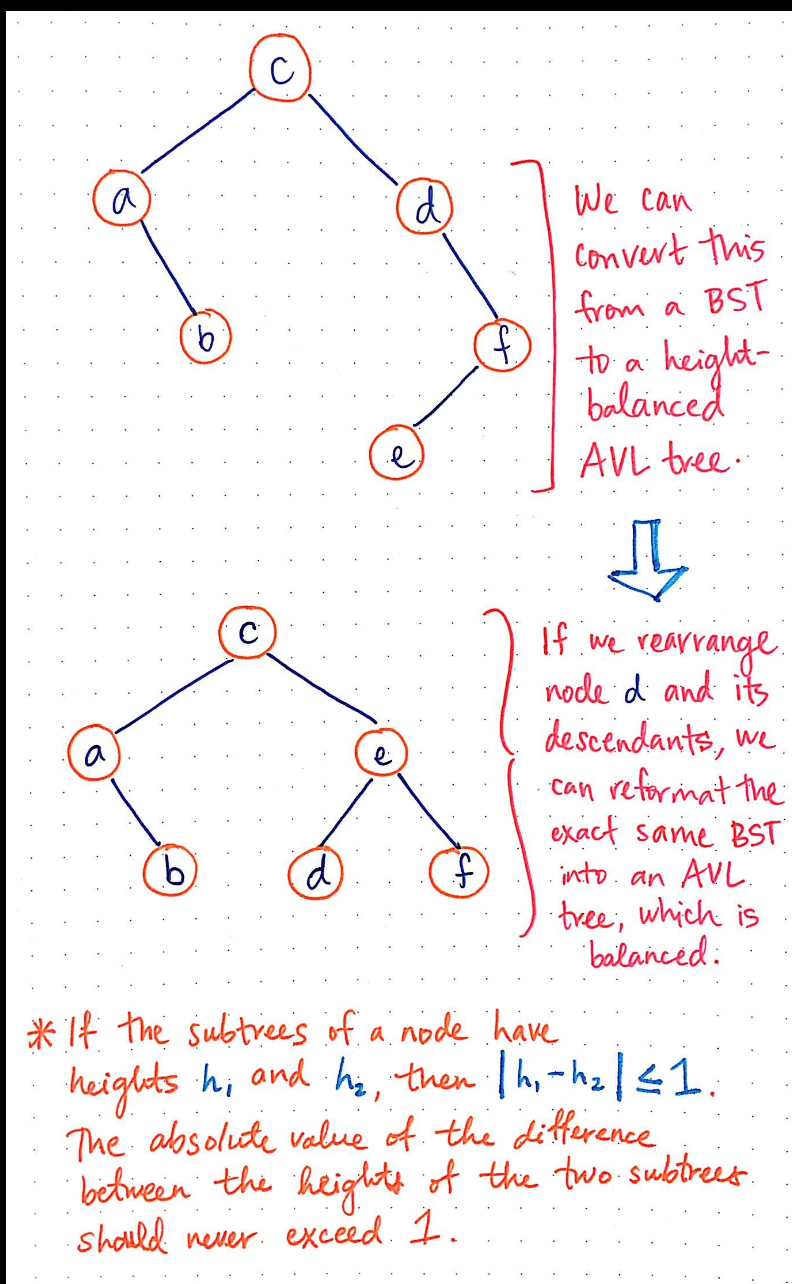 c
a
d
b
f
e
We can
convert this
from a BST
to a height-
balanced
AVL tree.
c
a
e
b
d
f
If we rearrange
node d and its
descendants, we
can reformat the
exact same BST
into an AVL
tree, which is
balanced.
* If the subtrees of a node have
heights h₁ and h₂, then |h₁-h₂| ≤ 1.
The absolute value of the difference
between the heights of the two subtrees
should never exceed 1.